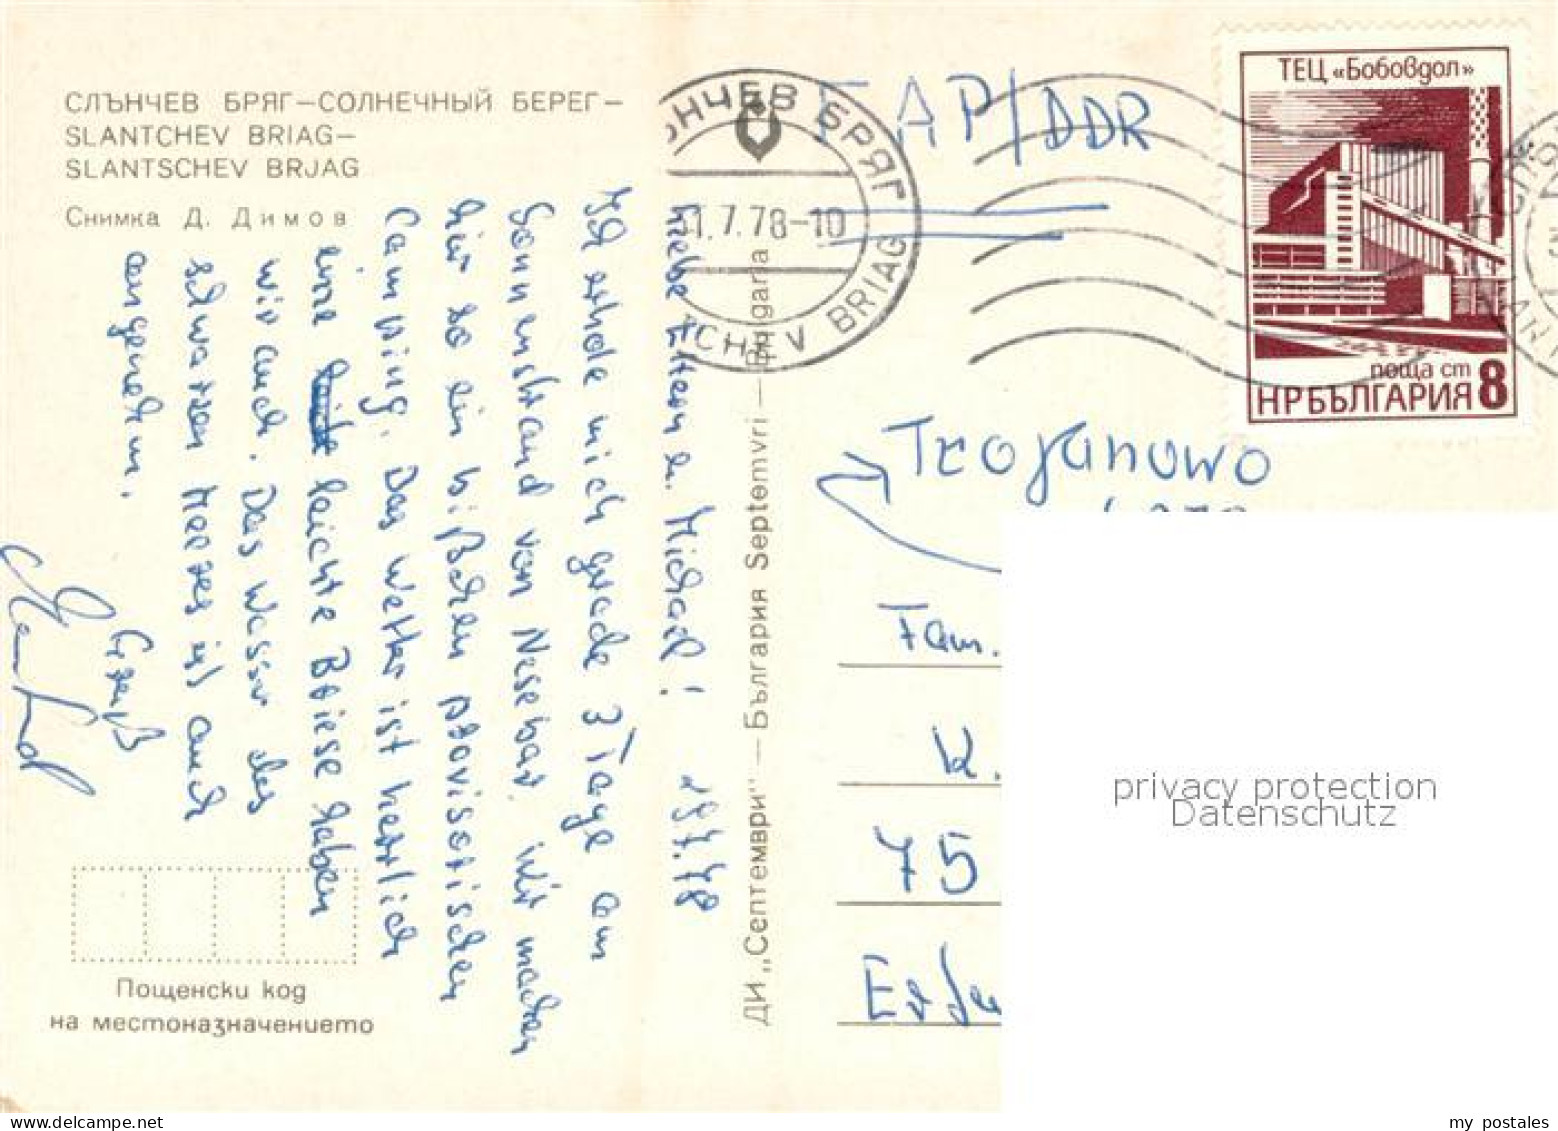 СЛЪНЧЕВ БРЯГ—СОЛНЕЧНЫЙ БЕРЕГ—
SLANTCHEV BRIAG—
SLANTSCHEV BRJAG
Снимка Д. Димов
Liebe Eltern u. Michael! 29.7.78
Ich erhole mich grade 3 Tage am
Sonnenstrand von Nesebar. Wir machen
hier so ein bißchen provisorischen
Camping. Das Wetter ist herrlich
eine leichte Briese haben
wir auch. Das Wasser des
schwarzen Meeres ist auch
angenehm.
Gruß
Пощенски код
на местоназначението
ДИ „Септември" — България Septemvri — Bulgaria
СЛЪНЧЕВ БРЯГ
1.7.78-10
TCHEV BRIAG
FAP/DDR
ТЕЦ «Бобовдол»
поща ст
НРБЪЛГАРИЯ 8
Trojanowo
Fam.
K.
75
privacy protection
Datenschutz
my postales